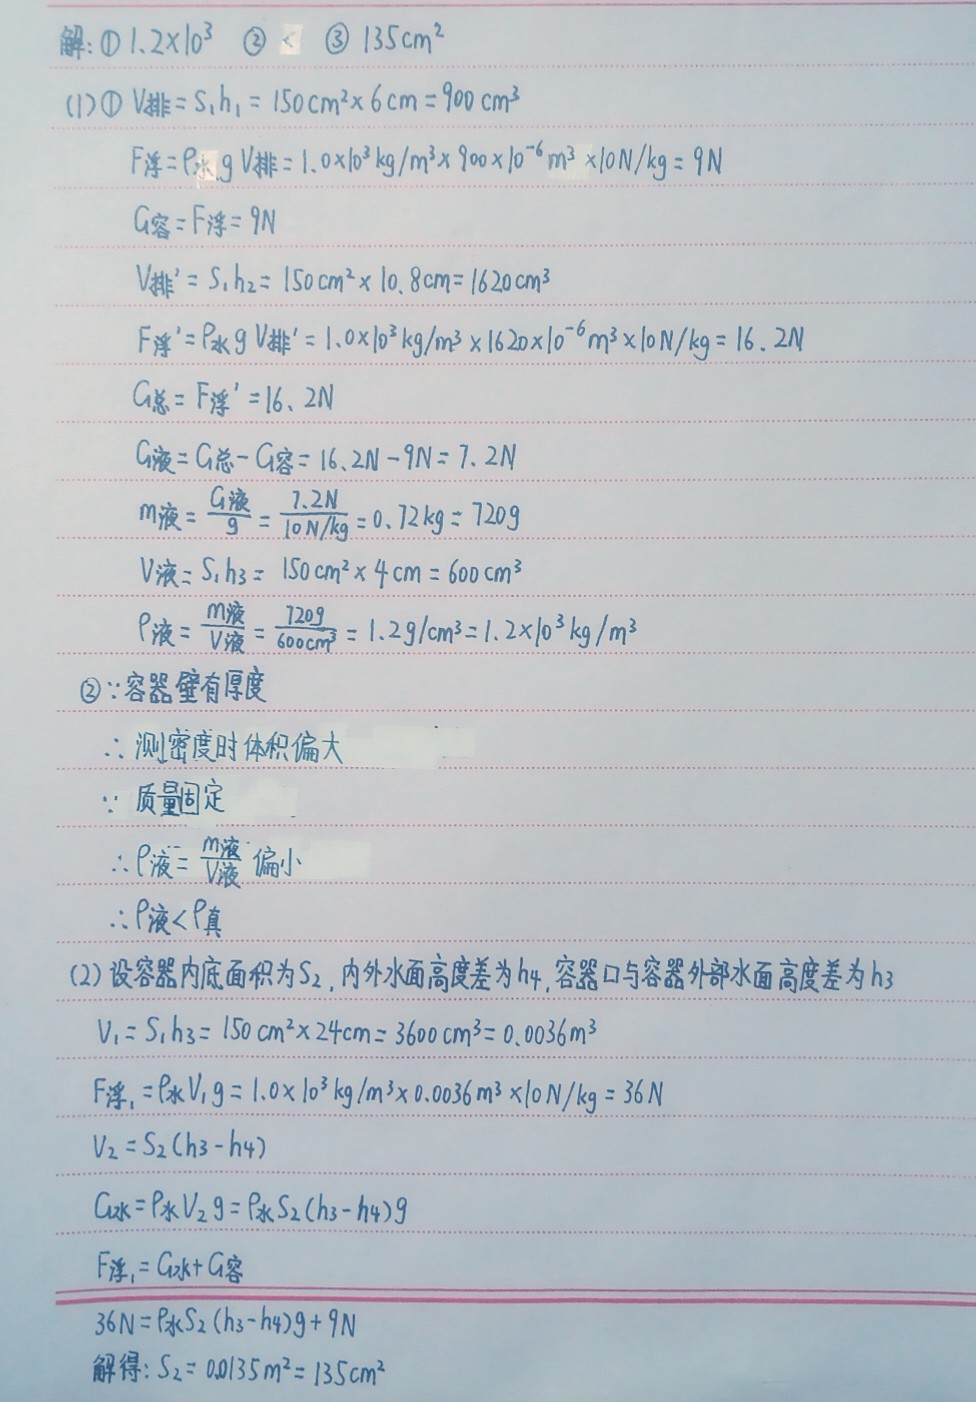 解:① 1.2×10³ ② < ③ 135cm²
(1)① V排=S₁h₁=150cm²×6cm=900cm³
F浮=ρ水gV排=1.0×10³kg/m³×900×10⁻⁶m³×10N/kg=9N
G容=F浮=9N
V排'=S₁h₂=150cm²×10.8cm=1620cm³
F浮'=ρ水gV排'=1.0×10³kg/m³×1620×10⁻⁶m³×10N/kg=16.2N
G总=F浮'=16.2N
G液=G总-G容=16.2N-9N=7.2N
m液=G液/g=7.2N/10N/kg=0.72kg=720g
V液=S₁h3=150cm²×4cm=600cm³
ρ液=m液/V液=720g/600cm³=1.2g/cm³=1.2×10³kg/m³
②∵容器壁有厚度
∴测密度时体积偏大
∵质量固定
∴ρ液=m液/V液偏小
∴ρ液<ρ真
(2)设容器内底面积为S₂,内外水面高度差为h4,容器口与容器外部水面高度差为h3
V₁=S₁h3=150cm²×24cm=3600cm³=0.0036m³
F浮₁=ρ水V₁g=1.0×10³kg/m³×0.0036m³×10N/kg=36N
V₂=S₂(h3-h4)
G水=ρ水V₂g=ρ水S₂(h3-h4)g
F浮₁=G水+G容
36N=ρ水S₂(h3-h4)g+9N
解得:S₂=0.0135m²=135cm²